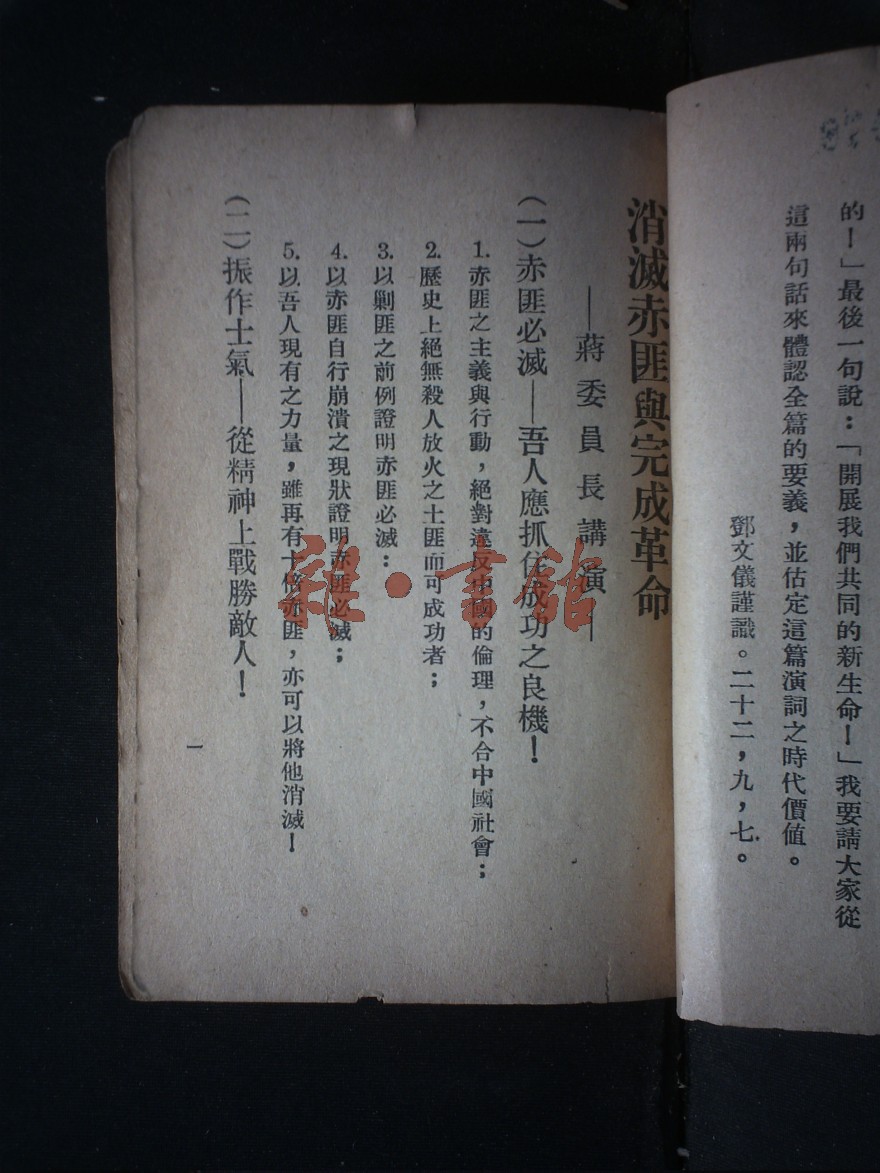 的！」最後一句說：「開展我們共同的新生命！」我要請大家從
這兩句話來體認全篇的要義，並估定這篇演詞之時代價值。
鄧文儀謹識。二十二，九，七。
消滅赤匪與完成革命
——蔣委員長講演——
（一）赤匪必滅——吾人應抓住成功之良機！
1. 赤匪之主義與行動，絕對違反中國的倫理，不合中國社會；
2. 歷史上絕無殺人放火之土匪而可成功者；
3. 以剿匪之前例證明赤匪必滅：
4. 以赤匪自行崩潰之現狀證明赤匪必滅；
5. 以吾人現有之力量，雖再有十倍赤匪，亦可以將他消滅！
（二）振作士氣——從精神上戰勝敵人！
一
雜·書館